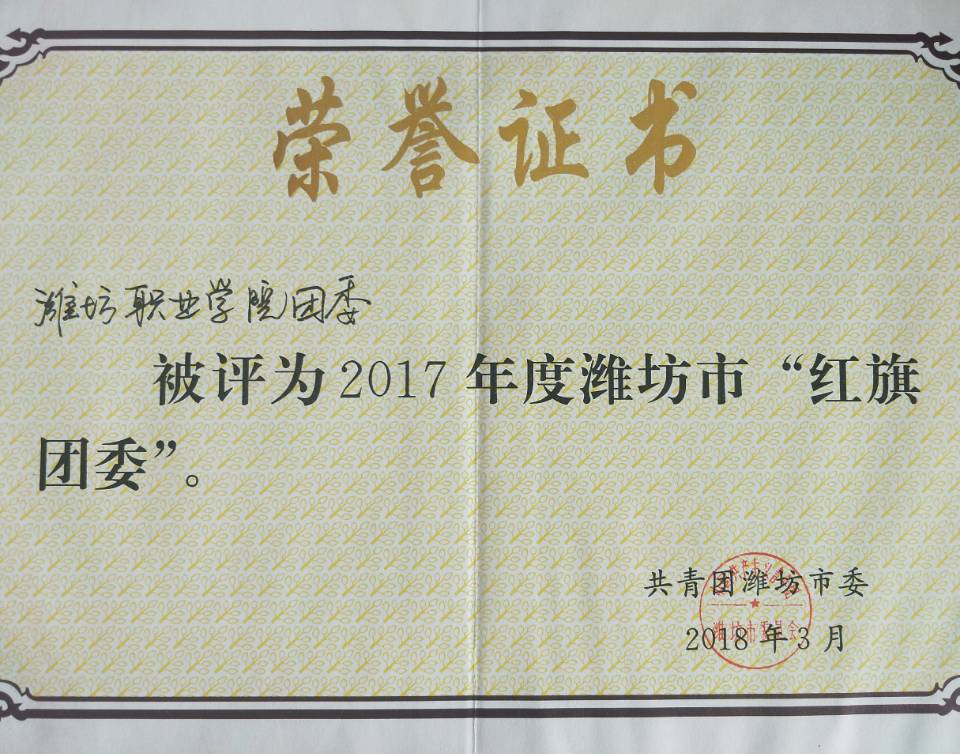 荣誉证书
潍坊职业学院团委
被评为2017年度潍坊市“红旗
团委”。
共青团潍坊市委
2018年3月
潍坊市委员会